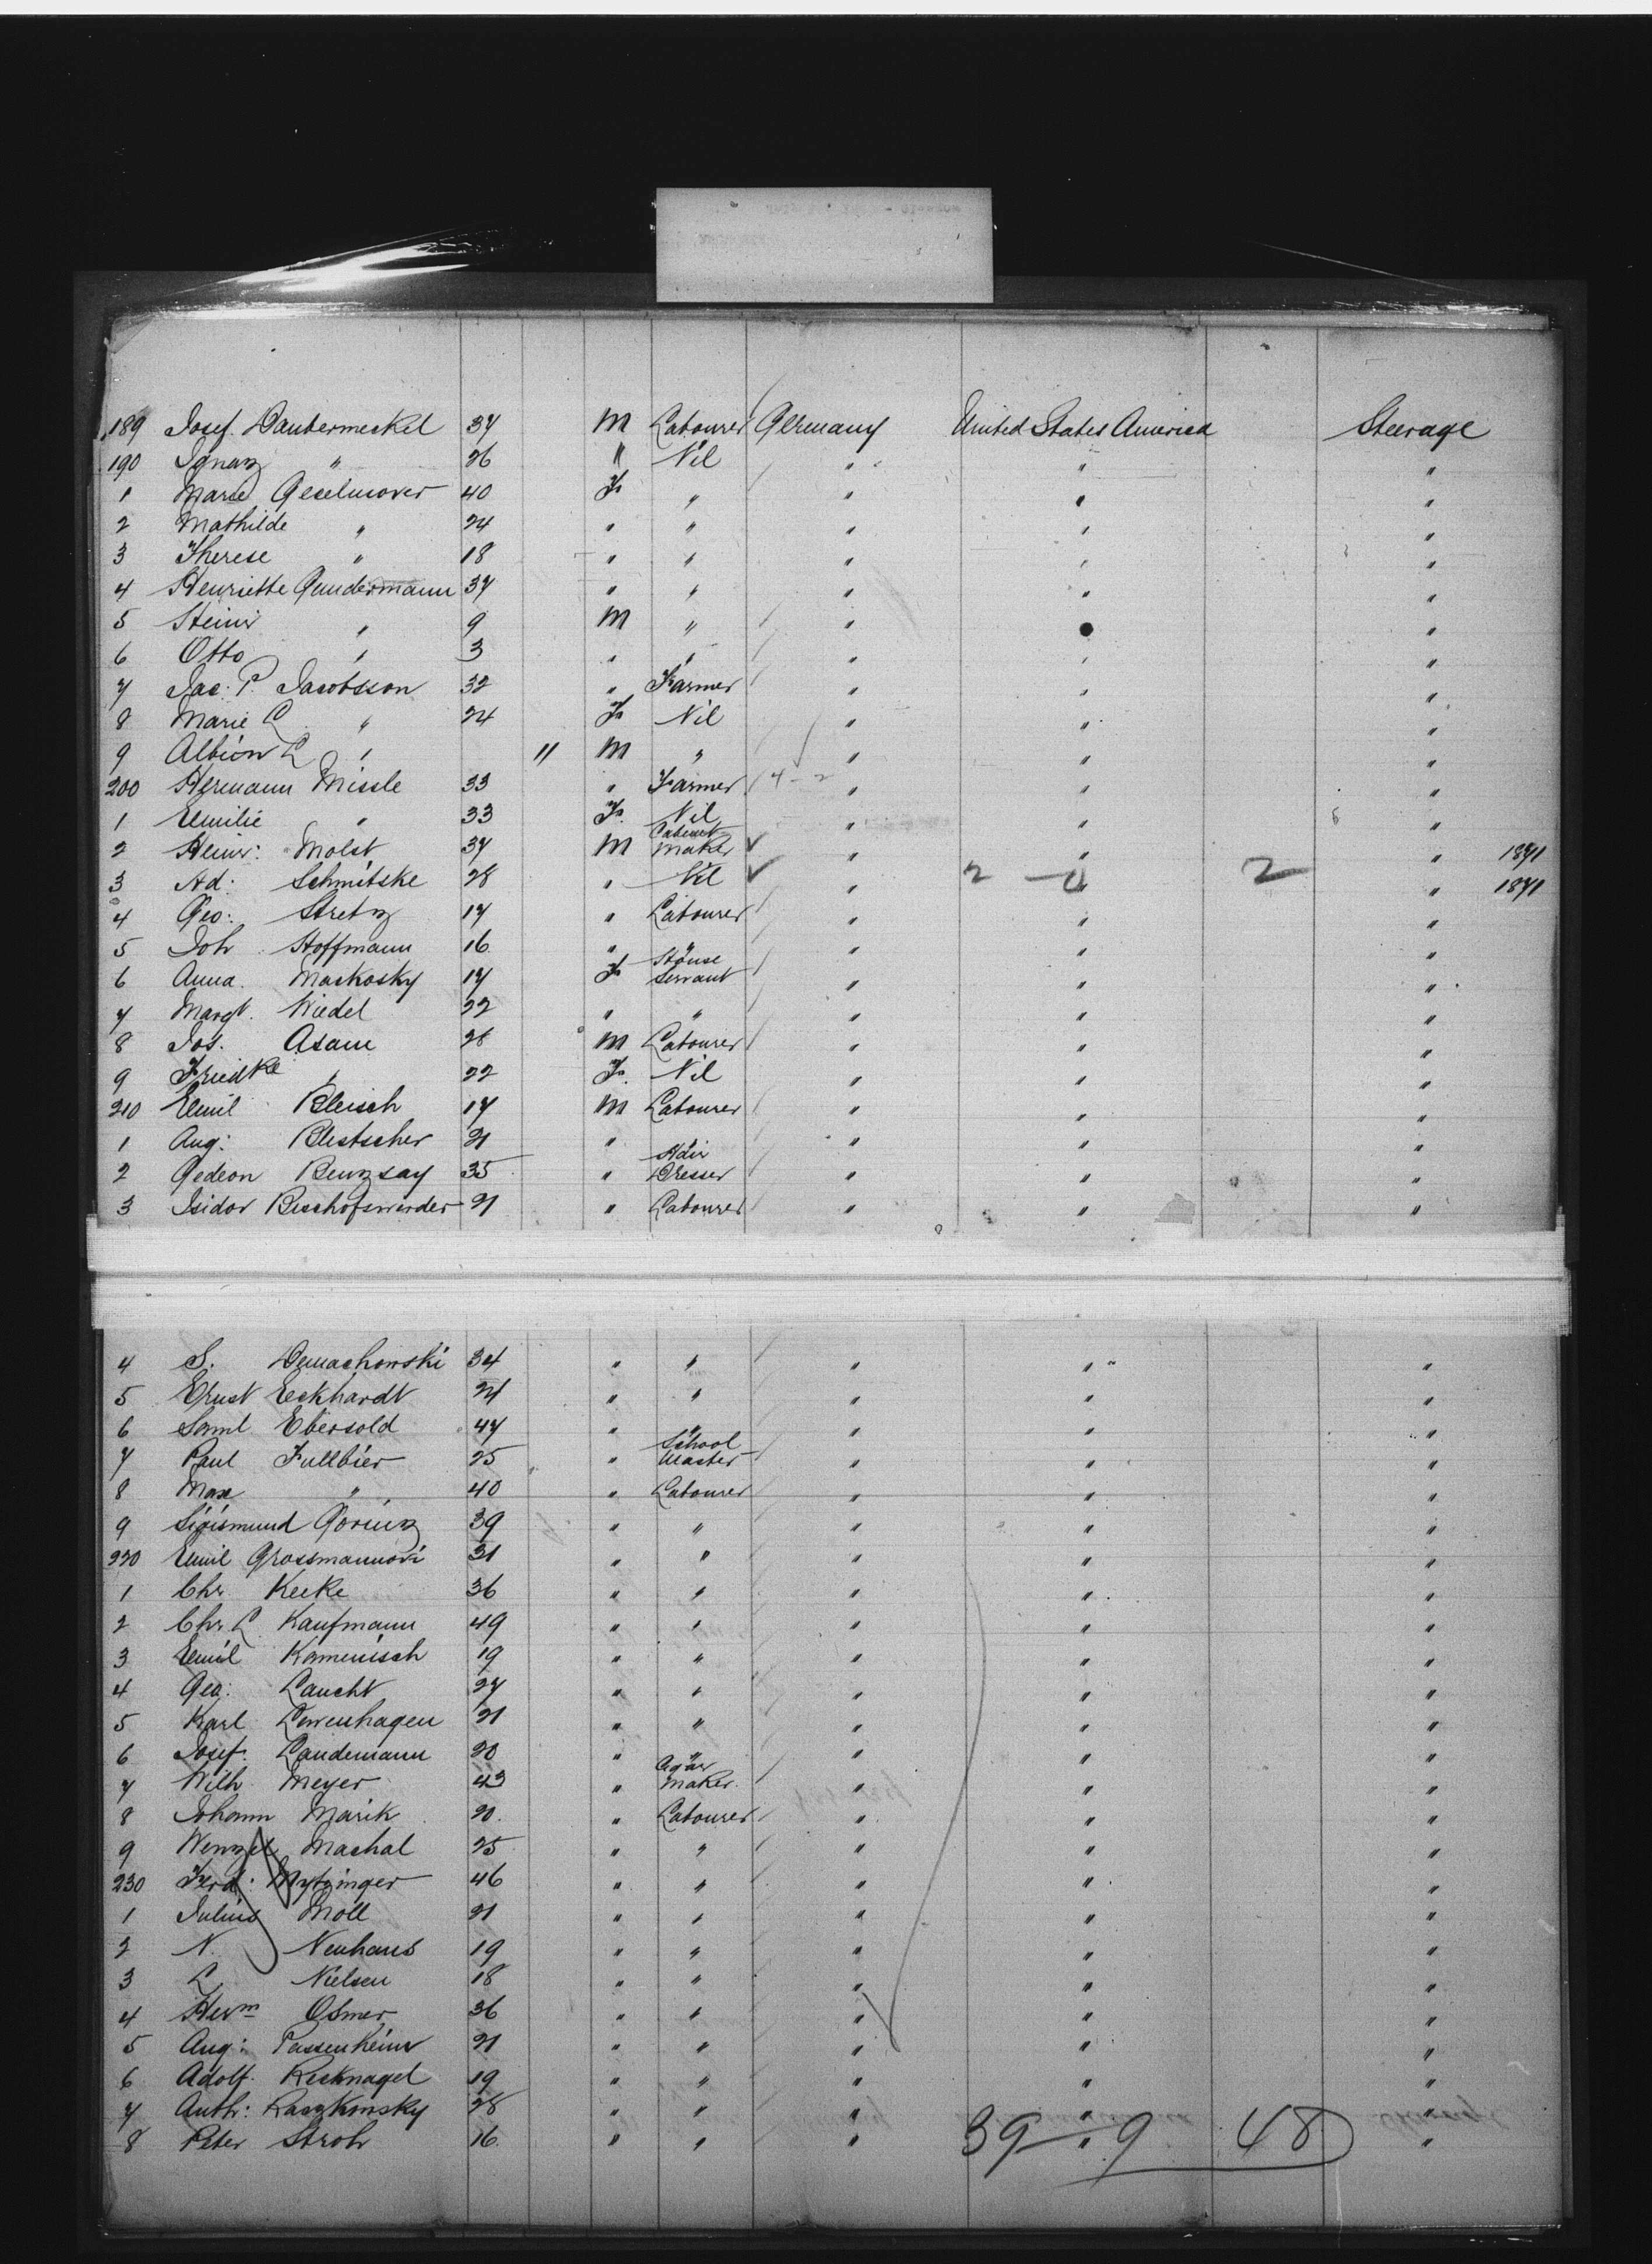 189 Josef. Daubermerkel 37 M Labourer Germany United States America Steerage
190 Ignaz " 26 " Nil " " "
1 Marie Geselmover 40 F. " " " "
2 Mathilde " 24 " " " " "
3 Therese " 18 " " " " "
4 Henriette Gundermann 37 " " " " "
5 Heinr " 9 M " " " "
6 Otto " 3 " " " " "
7 Jac: P. Jacobsson 32 " Farmer " " "
8 Marie C " 24 F. Nil " " "
9 Albion L " " M " " " "
200 Hermann Missle 33 " Farmer 4-2 " " "
1 Emilie " 33 F. Nil " " "
2 Heinr: Molst 37 M Cabinet Maker " " " 1871
3 Ad: Schmitske 28 " Nil " 2 - 0 " 2 " 1871
4 Geo: Stretz 17 " Labourer " " "
5 Joh Hoffmann 16 " " " " "
6 Anna. Maskosky 17 F. House Servant " " "
7 Margt. Wiedel 22 " " " " "
8 Jos. Asam 28 M Labourer " " "
9 Friedke " 22 F. Nil " " "
210 Emil Bleisch 17 M Labourer " " "
1 Aug: Bletscher 21 " " " "
2 Gedeon Benzsay 35 " Hair Dresser " " "
3 Isidor Bischofswerder 21 " Labourer " " "
4 S. Demachowski 34 " " " " "
5 Ernst Eckhardt 21 " " " " "
6 Saml Ebersold 47 " " " " "
7 Paul Fullbier 25 " School Master " " "
8 Max " 40 " Labourer " " "
9 Sigismund Gorinz 39 " " " " "
220 Emil Grossmannori 31 " " " " "
1 Chr. Keeke 36 " " " " "
2 Chr. L Kaufmann 49 " " " " "
3 Emil Kamenisch 19 " " " " "
4 Geo: Laucht 27 " " " " "
5 Karl Lowenhagen 21 " " " " "
6 Josef. Landemann 20 " " " " "
7 Wilh. Meyer 43 " Cigar Maker. " " "
8 Johann Marik 20. " Labourer " " "
9 Wenzel Machal 25 " " " " "
230 Ferd: Mytzinger 46 " " " " "
1 Julius Moll 21 " " " " "
2 N. Neuhaus 19 " " " " "
3 L Nielsen 18 " " " " "
4 Herm Osmer 36 " " " " "
5 Aug: Passenheim 21 " " " " "
6 Adolf. Recknagel 19 " " " " "
7 Anth: Raszkinsky 28 " " " " "
8 Peter Stroh 16. " " " 39 - " 9 48 "